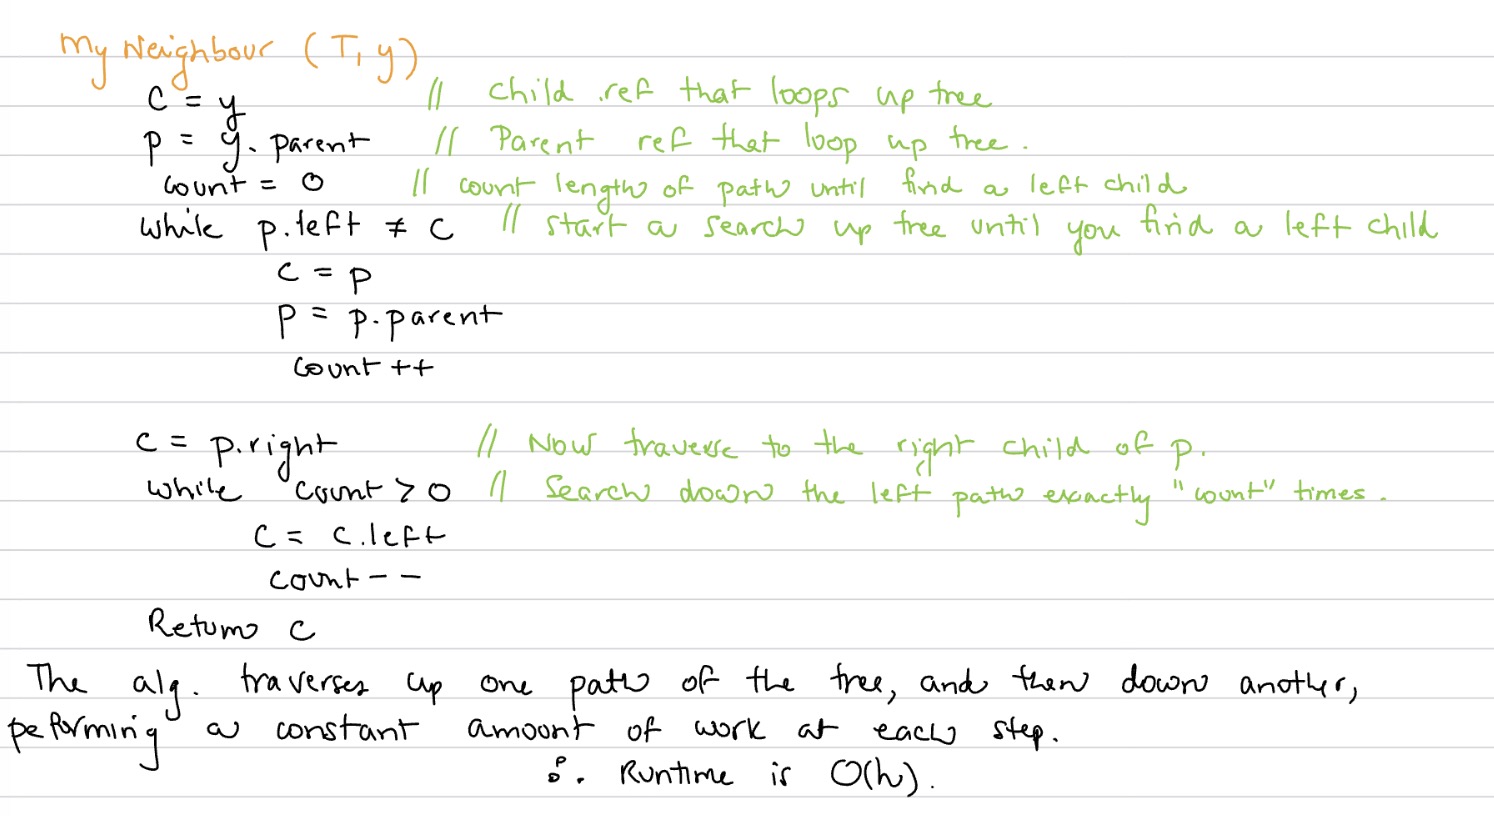 My Neighbour (T, y)
c = y // child ref that loops up tree
p = y.parent // Parent ref that loop up tree.
count = 0 // count length of path until find a left child
while p.left ≠ c // start a search up tree until you find a left child
c = p
p = p.parent
count ++
c = p.right // Now traverse to the right child of p.
while count > 0 // Search down the left path exactly "count" times.
c = c.left
count --
Return c
The alg. traverses up one path of the tree, and then down another,
performing a constant amount of work at each step.
∴ Runtime is O(h).